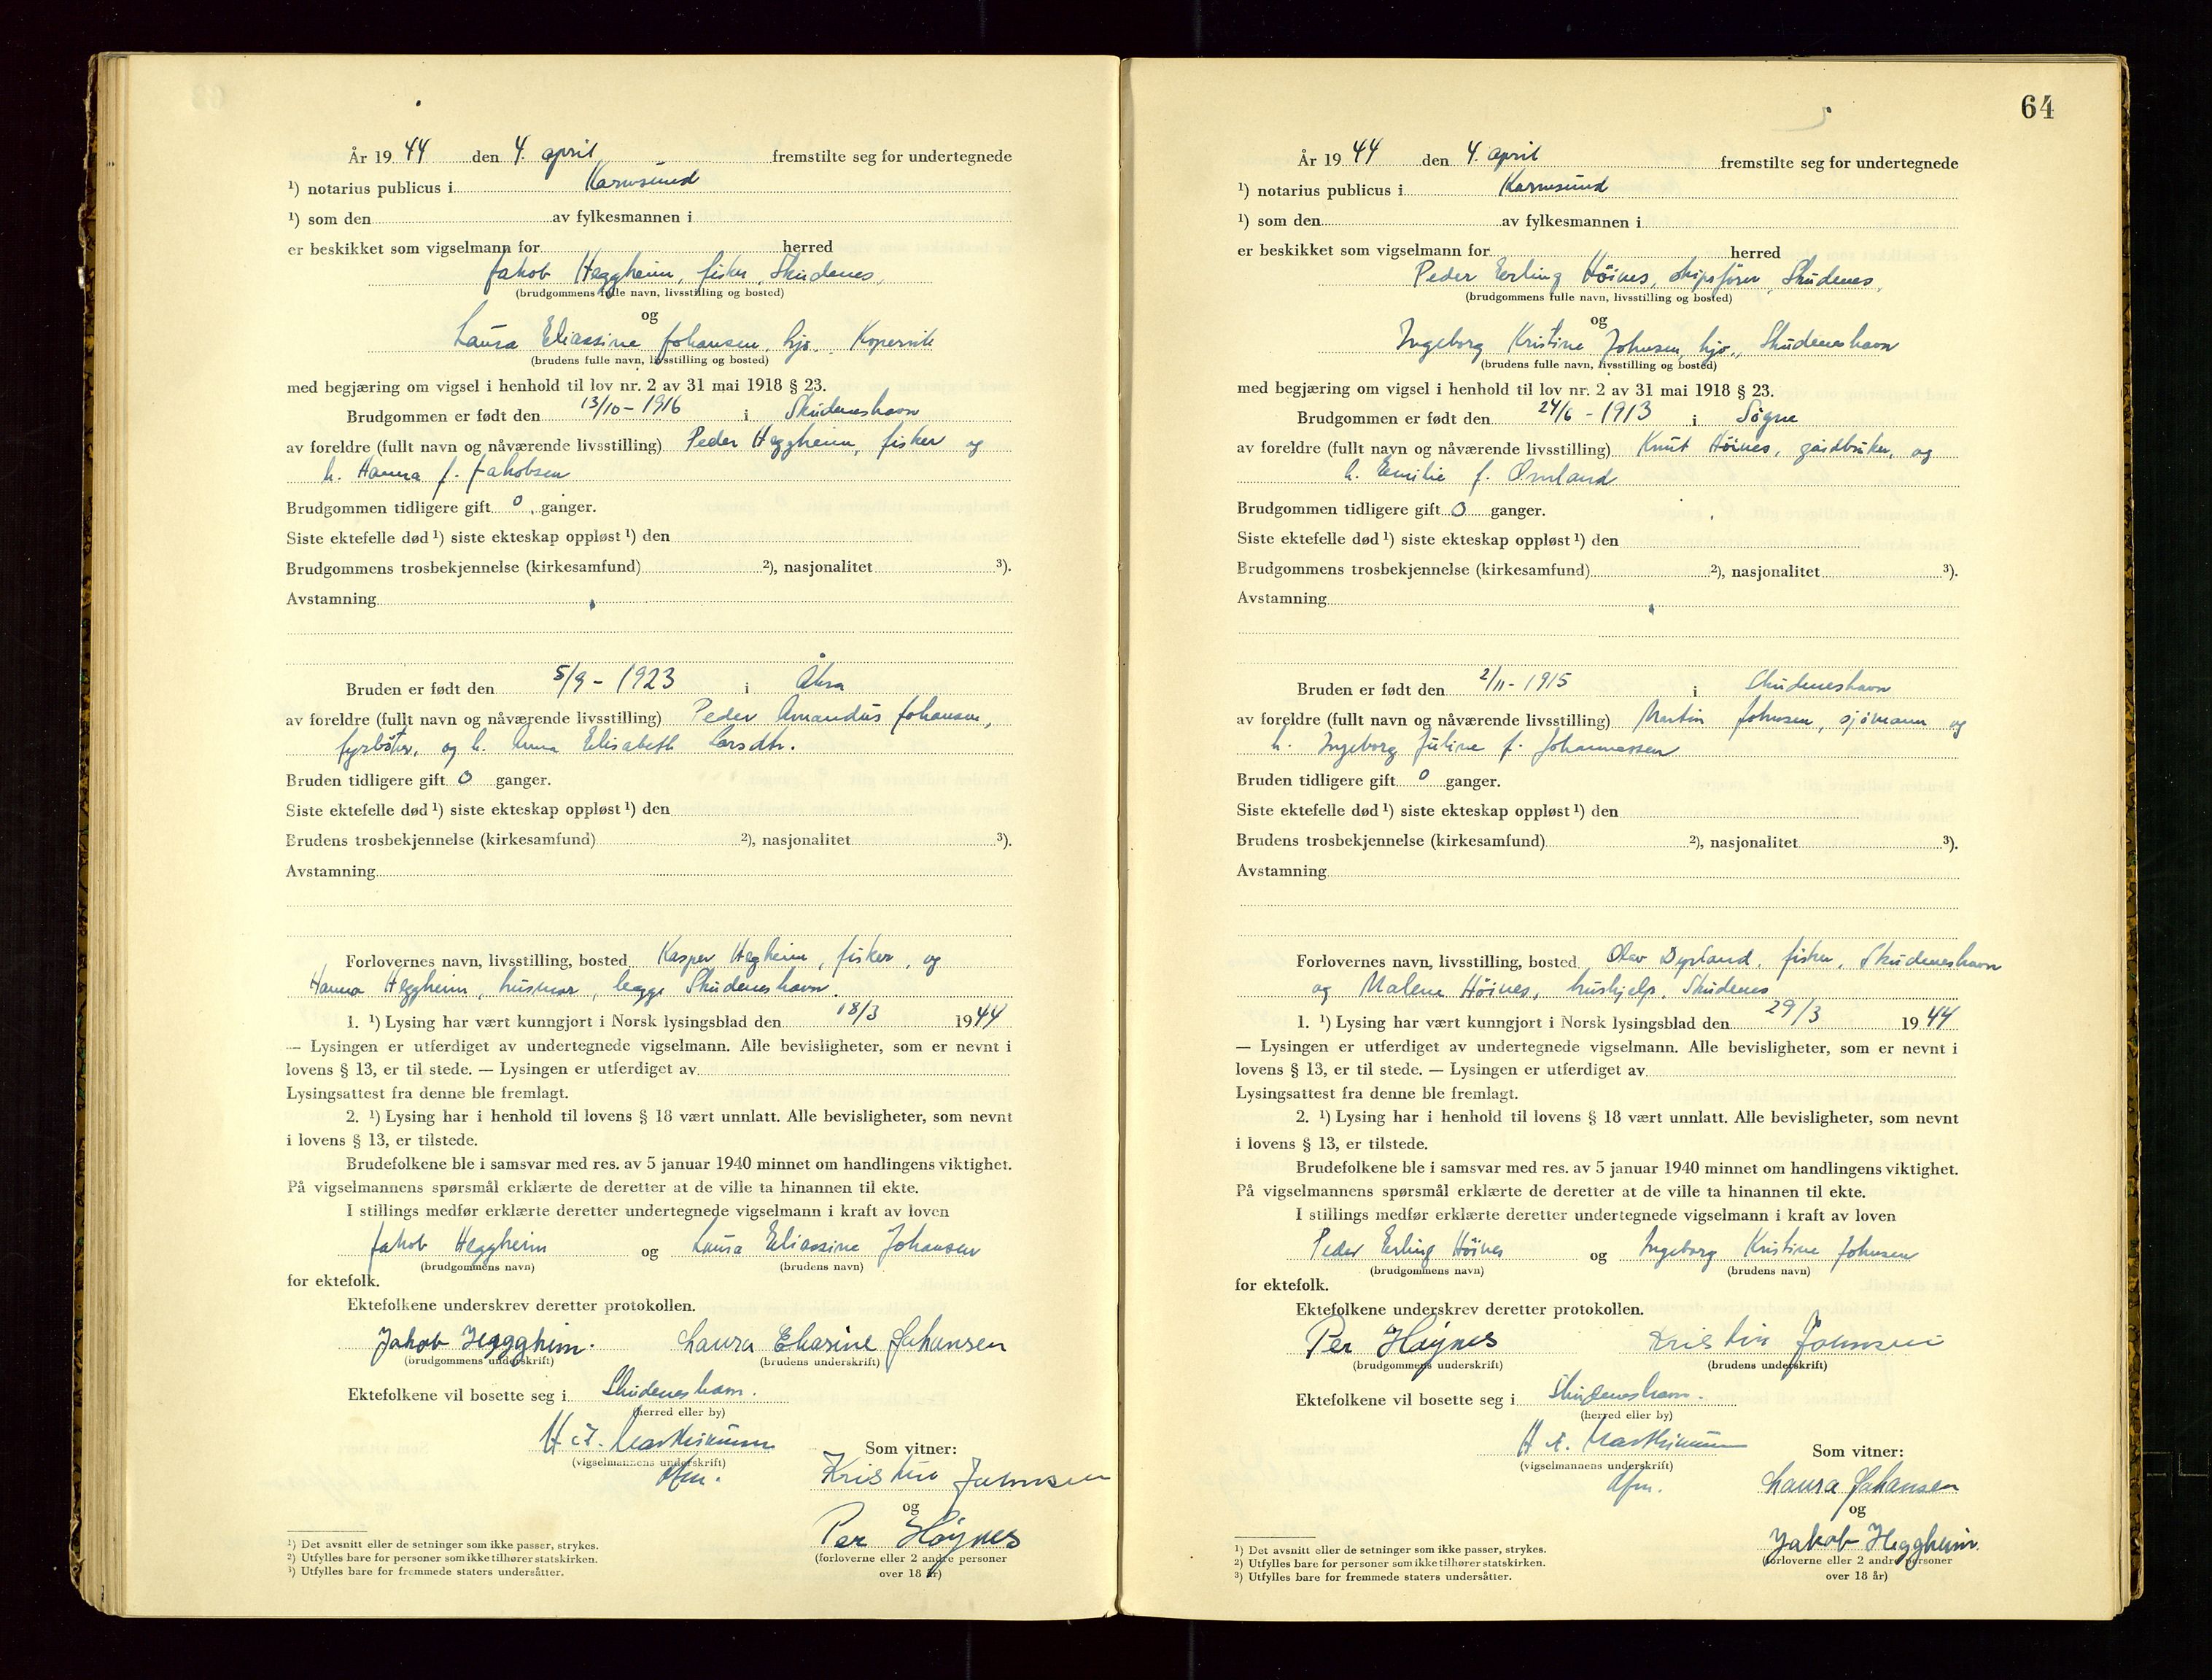 År 19 44 den 4. april fremstilte seg for undertegnede
¹) notarius publicus i Karmsund
¹) som den av fylkesmannen i
er beskikket som vigselmann for herred
Jakob Heggheim, fisker, Skudenes,
(brudgommens fulle navn, livsstilling og bosted)
og
Laura Eliassine Johansen, hjv., Kopervik
(brudens fulle navn, livsstilling og bosted)
med begjæring om vigsel i henhold til lov nr. 2 av 31 mai 1918 § 23.
Brudgommen er født den 13/10 - 1916 i Skudeneshavn
av foreldre (fullt navn og nåværende livsstilling) Peder Heggheim, fisker og
h. Hanna f. Jakobsen
Brudgommen tidligere gift 0 ganger.
Siste ektefelle død ¹) siste ekteskap oppløst ¹) den
Brudgommens trosbekjennelse (kirkesamfund) ²), nasjonalitet ³).
Avstamning
Bruden er født den 5/9 - 1923 i Åkra
av foreldre (fullt navn og nåværende livsstilling) Peder Amandus Johansen,
fyrbøter, og h. Anna Elisabeth Larsdtr.
Bruden tidligere gift 0 ganger.
Siste ektefelle død ¹) siste ekteskap oppløst ¹) den
Brudens trosbekjennelse (kirkesamfund) ²), nasjonalitet ³).
Avstamning
Forlovernes navn, livsstilling, bosted Kasper Hegheim, fisker, og
Hanna Heggheim, husmor, begge Skudeneshavn.
1. ¹) Lysing har vært kunngjort i Norsk lysingsblad den 18/3 1944
— Lysingen er utferdiget av undertegnede vigselmann. Alle bevisligheter, som er nevnt i
lovens § 13, er til stede. — Lysingen er utferdiget av
Lysingsattest fra denne ble fremlagt.
2. ¹) Lysing har i henhold til lovens § 18 vært unnlatt. Alle bevisligheter, som nevnt
i lovens § 13, er tilstede.
Brudefolkene ble i samsvar med res. av 5 januar 1940 minnet om handlingens viktighet.
På vigselmannens spørsmål erklærte de deretter at de ville ta hinannen til ekte.
I stillings medfør erklærte deretter undertegnede vigselmann i kraft av loven
Jakob Heggheim og Laura Eliassine Johansen
(brudgommens navn) (brudens navn)
for ektefolk.
Ektefolkene underskrev deretter protokollen.
Jakob Heggheim. Laura Eliasine Johansen
(brudgommens underskrift) (brudens underskrift)
Ektefolkene vil bosette seg i Skudeneshavn.
(herred eller by)
(vigselmannens underskrift)
Som vitner:
Kristin Johnsen
og
Per Høynes
(forloverne eller 2 andre personer
over 18 år)
¹) Det avsnitt eller de setninger som ikke passer, strykes.
²) Utfylles bare for personer som ikke tilhører statskirken.
³) Utfylles bare for fremmede staters undersåtter.
64
År 19 44 den 4. april fremstilte seg for undertegnede
¹) notarius publicus i Karmsund
¹) som den av fylkesmannen i
er beskikket som vigselmann for herred
Peder Erling Höines, skipsfører, Skudenes,
(brudgommens fulle navn, livsstilling og bosted)
og
Ingeborg Kristine Johnsen, hjv., Skudeneshavn
(brudens fulle navn, livsstilling og bosted)
med begjæring om vigsel i henhold til lov nr. 2 av 31 mai 1918 § 23.
Brudgommen er født den 24/6 - 1913 i Sögne
av foreldre (fullt navn og nåværende livsstilling) Knut Höines, gårdbruker, og
h. Emilie f. Omland
Brudgommen tidligere gift 0 ganger.
Siste ektefelle død ¹) siste ekteskap oppløst ¹) den
Brudgommens trosbekjennelse (kirkesamfund) ²), nasjonalitet ³).
Avstamning
Bruden er født den 2/11 - 1915 i Skudeneshavn
av foreldre (fullt navn og nåværende livsstilling) Martin Johnsen, sjömann og
h. Ingeborg Juline f. Johannessen
Bruden tidligere gift 0 ganger.
Siste ektefelle død ¹) siste ekteskap oppløst ¹) den
Brudens trosbekjennelse (kirkesamfund) ²), nasjonalitet ³).
Avstamning
Forlovernes navn, livsstilling, bosted Olav Dyrland, fisker, Skudeneshavn
og Malene Höines, hushjelp, Skudenes
1. ¹) Lysing har vært kunngjort i Norsk lysingsblad den 29/3 19 44
— Lysingen er utferdiget av undertegnede vigselmann. Alle bevisligheter, som er nevnt i
lovens § 13, er til stede. — Lysingen er utferdiget av
Lysingsattest fra denne ble fremlagt.
2. ¹) Lysing har i henhold til lovens § 18 vært unnlatt. Alle bevisligheter, som nevnt
i lovens § 13, er tilstede.
Brudefolkene ble i samsvar med res. av 5 januar 1940 minnet om handlingens viktighet.
På vigselmannens spørsmål erklærte de deretter at de ville ta hinannen til ekte.
I stillings medfør erklærte deretter undertegnede vigselmann i kraft av loven
Peder Erling Höines og Ingeborg Kristine Johnsen
(brudgommens navn) (brudens navn)
for ektefolk.
Ektefolkene underskrev deretter protokollen.
Per Høynes Kristin Johnsen
(brudgommens underskrift) (brudens underskrift)
Ektefolkene vil bosette seg i Skudeneshavn.
(herred eller by)
(vigselmannens underskrift)
Som vitner:
Laura Johansen
og
Jakob Heggheim.
(forloverne eller 2 andre personer
over 18 år)
¹) Det avsnitt eller de setninger som ikke passer, strykes.
²) Utfylles bare for personer som ikke tilhører statskirken.
³) Utfylles bare for fremmede staters undersåtter.